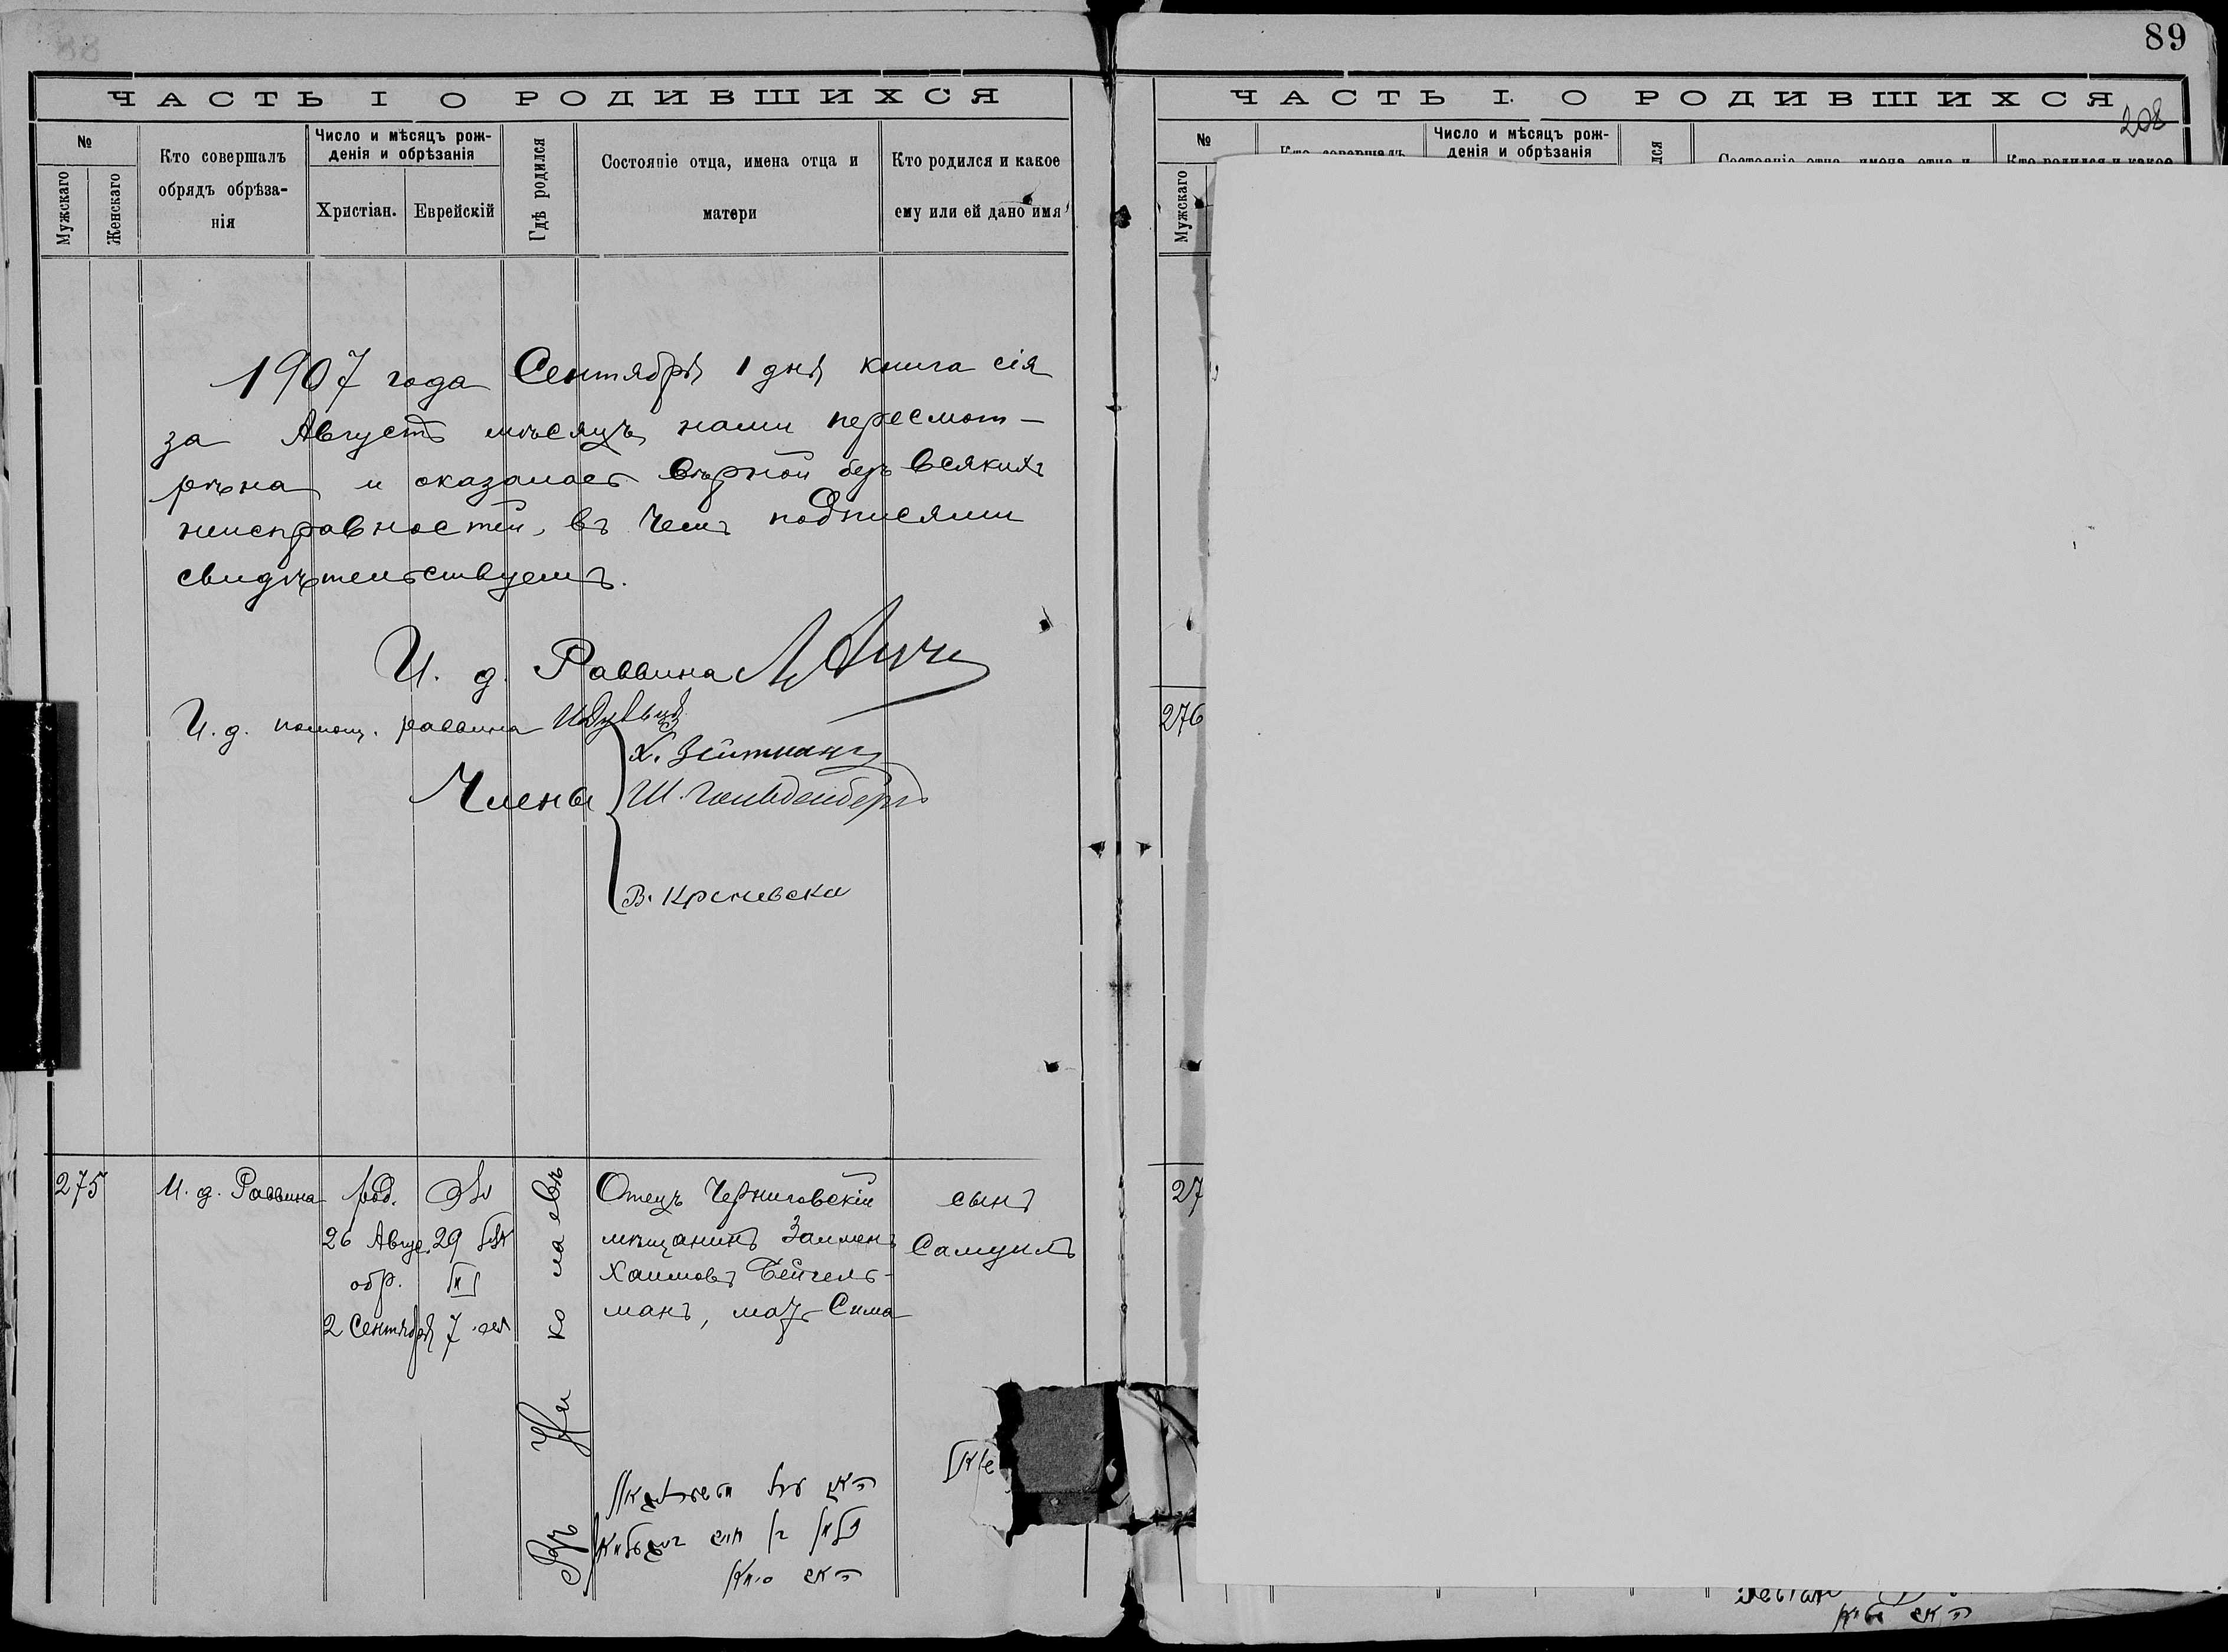 88
ЧАСТЬ I О РОДИВШИХСЯ
№
Мужскаго
Женскаго
Кто совершалъ
обрядъ обрѣза-
нія
Число и мѣсяцъ рож-
денія и обрѣзанія
Христіан.
Еврейскій
Гдѣ родился
Состояніе отца, имена отца и
матери
Кто родился и какое
ему или ей дано имя
1907 года Сентября 1 дня книга сія
за Августъ мѣсяцъ нами пересмот-
рѣна и оказалась вѣрной безъ всякихъ
неисправностей, въ чемъ подписями
свидѣтельствуемъ.
И. д. Раввина
И. д. помощ. раввина
Члены
Х. Зейтманъ
Ш. Гольденбергъ
275
И. д. Раввина
род.
26 Авгус.
обр.
2 Сентября
29
7
Въ Николаевѣ
Отецъ Черниговскій
мѣщанинъ Залменъ
Хаимовъ Бейгель-
манъ, мать Сима
сынъ
Самуилъ
89
ЧАСТЬ I. О РОДИВШИХСЯ
208
№
Мужскаго
Кто совершалъ
Число и мѣсяцъ рож-
денія и обрѣзанія
Состояніе отца, имена отца и
Кто родился и какое
276
27